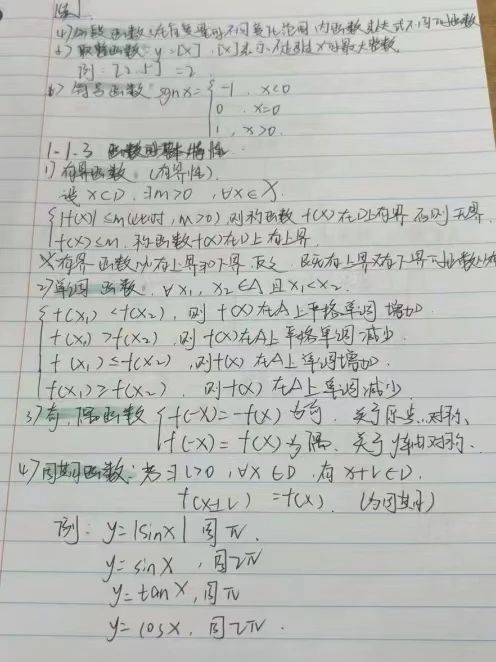 4) 分段函数：在自变量的不同变化范围内函数表达式不同的函数
5) 取整函数 y=[x] . [x]表示不超过x的最大整数.
例：[2.5]=2
6) 符号函数 sgn x = { -1 , x<0
0 , x=0
1 , x>0.
1-1.3 函数的基本特性
1) 有界函数 (有界性).
设 x∈D , ∃m>0 , ∀x∈X.
{ |f(x)| ≤ m(此时, m>0), 则称函数 f(x)在D上有界 否则无界.
f(x) ≤ m. 称函数f(x)在D上有上界.
※有界函数 有上界和下界, 反之, 既有上界又有下界
2) 单调函数. ∀x₁, x₂∈A 且 x₁<x₂.
{ f(x₁) < f(x₂), 则 f(x)在A上严格单调增加
f(x₁) > f(x₂), 则 f(x)在A上严格单调减少
f(x₁) ≤ f(x₂) , 则f(x)在A上单调增加.
f(x₁) ≥ f(x₂) , 则f(x)在A上单调减少
3) 奇, 偶函数 { f(-x)=-f(x) 为奇. 关于原点对称、
f(-x)= f(x)为偶. 关于y轴对称.
4) 周期函数：若∃l>0 , ∀x∈D , 有 x+l∈D.
f(x±l) =f(x). (为周期)
例：y=|sinx| 周π
y=sinx , 周2π
y=tanx, 周π
y=cosx, 周2π.